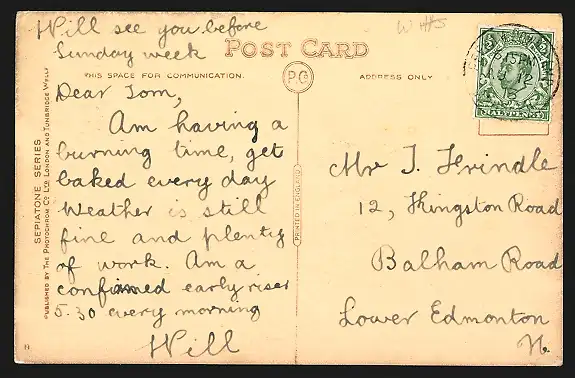 Will see you before
Sunday week
POST CARD
THIS SPACE FOR COMMUNICATION.
P.C
ADDRESS ONLY
Dear Tom,
Am having a
burning time, get
baked every day
Weather is still
fine and plenty
of work. Am a
confirmed early riser
5.30 every morning
Will
SEPIATONE SERIES
PUBLISHED BY THE PHOTOCHROM CO. LTD. LONDON AND TUNBRIDGE WELLS
PRINTED IN ENGLAND
HALFPENNY
Mr T.
12, Road
Balham Road
Lower Edmonton
N.